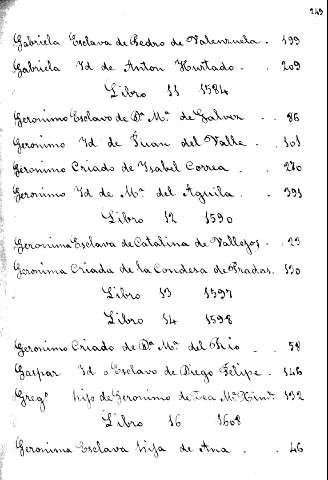 249
Gabriela Esclava de Pedro de Valenzuela . 199
Gabriela Id de Anton Hurtado . . 209
Libro 11 1584
Geronimo Esclavo de Dª Mª de Galvez . . 86
Geronimo Id de Juan del Valle . . 101
Geronimo Criado de Isabel Correa . . 270
Geronimo Id de Mª del Aguila . . 391
Libro 12 1590
Geronima Esclava de Catalina de Vallejos . 23
Geronima Criada de la Condesa de Prados . 130
Libro 13 1597
Libro 14 1598
Geronimo Criado de Dª Mª del . . 58
Gaspar Id o Esclavo de Diego Felipe . 146
Gregº hijo de Geronimo de Mª 132
Libro 16 1608
Geronima Esclava hija de Ana . . 46